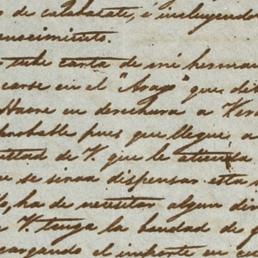 de calabatate, é incluyendo
nocimiento.
tube carta de mi herman
carse en el "Arago" que de
Havre en derechura a Ver
probable pues que llegue, a
de V. que le atienda
se sirva dispensar esta
lo, ha de necesitar algun di
V. tenga la bondad de f
cargando el importe en cu